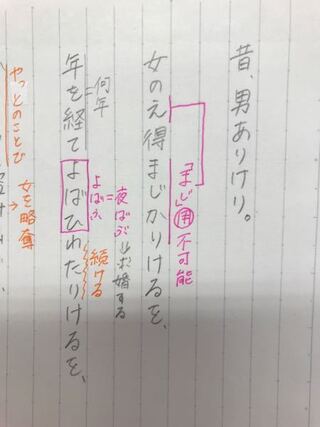 昔、男ありけり。
「まじ」用不可能
女のえ得まじかりけるを、
=何年
夜ばふ
求婚する
よばふ
続ける
年を経てよばひわたりけるを、
やっとのことで
女を略奪